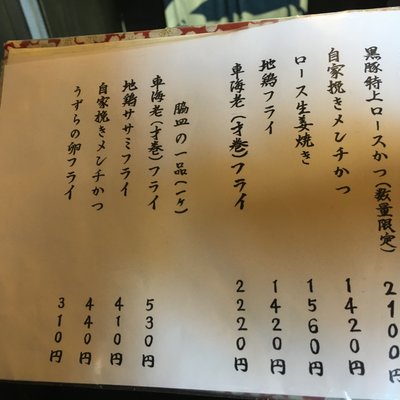 黒豚特上ロースかつ(数量限定) 2100円
自家挽きメンチかつ 1420円
ロース生姜焼き 1560円
地鶏フライ 1420円
車海老(才巻)フライ 2220円
脇皿の一品(一ヶ)
車海老(才巻)フライ 530円
地鶏ササミフライ 410円
自家挽きメンチかつ 440円
うずらの卵フライ 310円